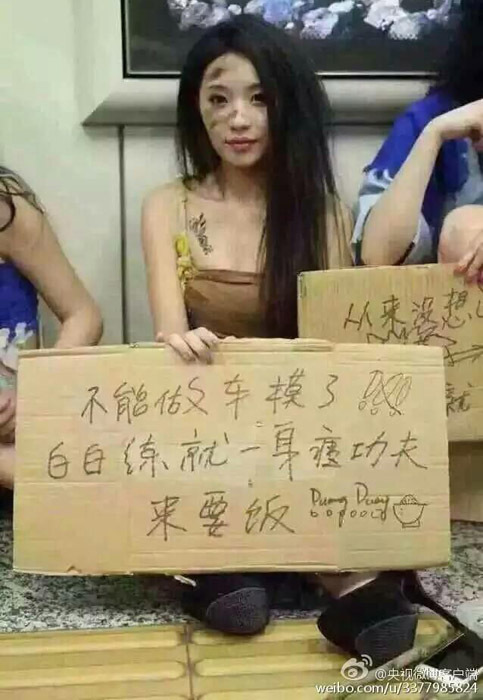 不能做车模了!!!
白白练就一身瘦功夫
来要饭 Duang Duang
从来没想
就
@央视微博客户端
weibo.com/u/3377985824